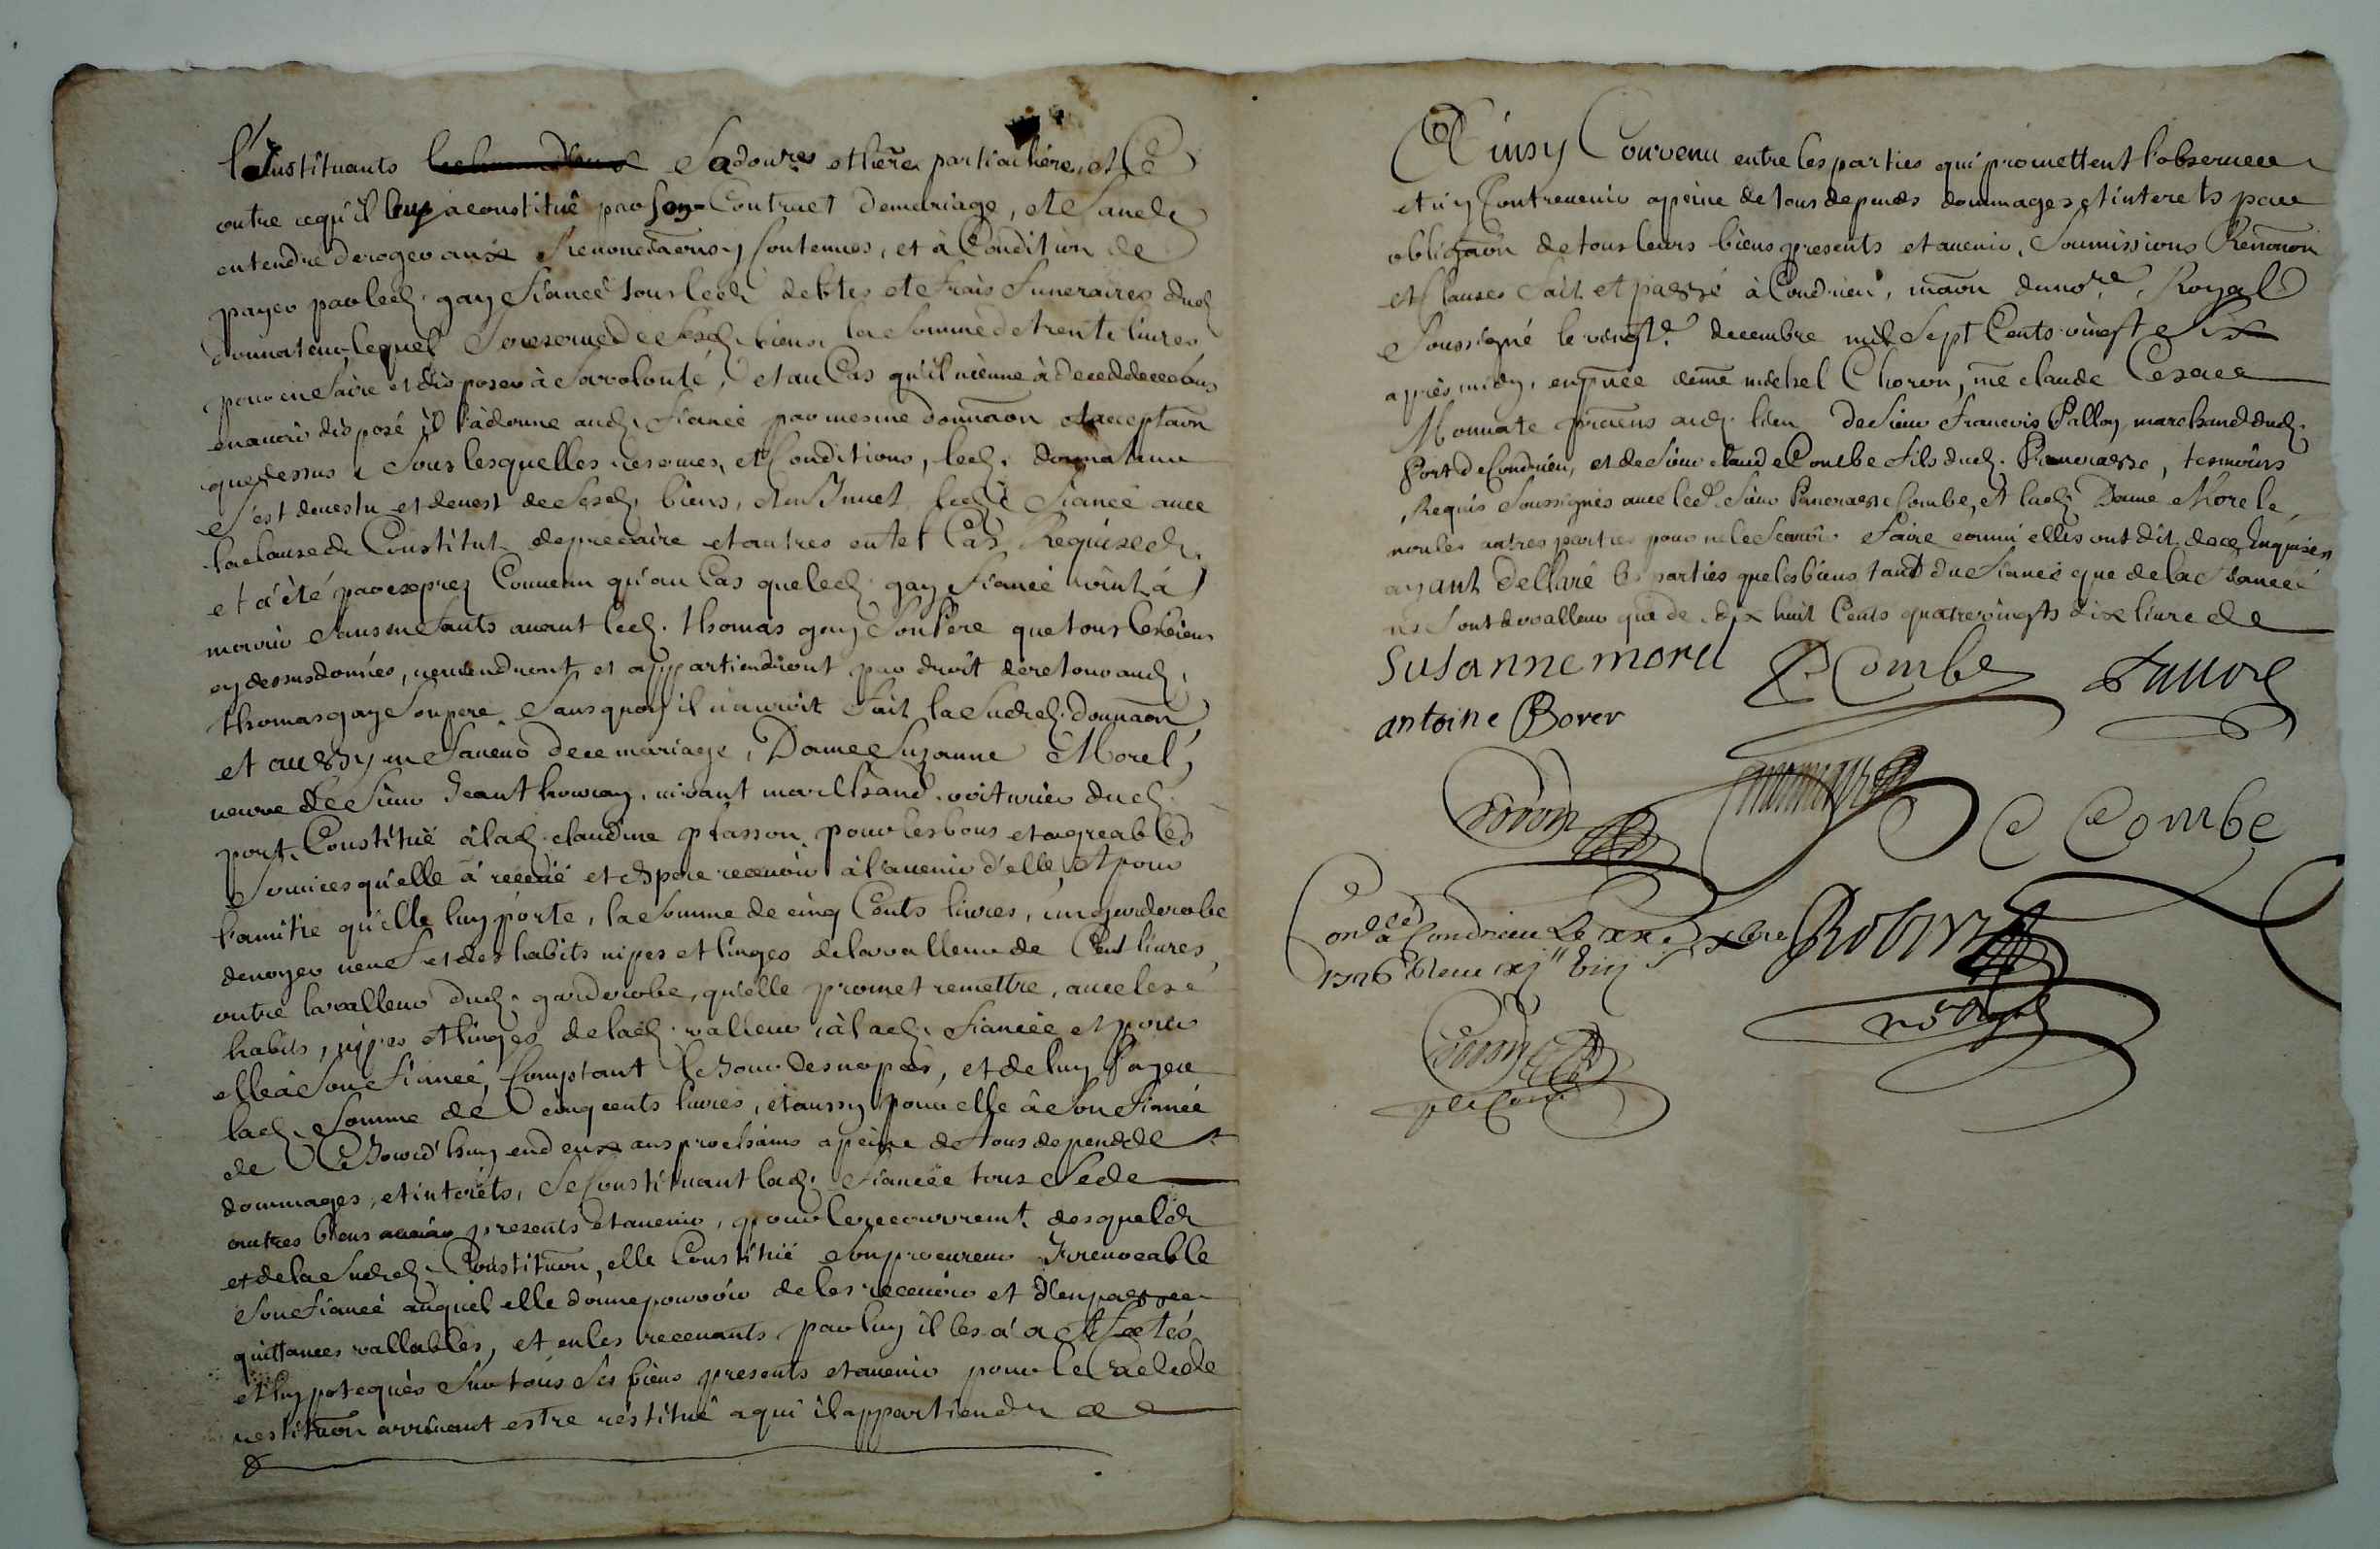 l'Instituants sa donre et here particuliere, et ce
outre ce qu'il luy a constitué par son Contract de mariage, et sans
entendre deroger aux renonciaons y contenues, et à Condition de
payer par led. gay fiancé tous led. debtes et frais funeraires dud.
donnateur, lequel se reserve de sesd. biens la somme de trente livres
pour en faire et disposer à sa volonté, et au Cas qu'il vienne à deceder sans
en avoir disposé il l'à donne aud. fiancé par mesme donnaon et acceptaon
que dessus, sous lesquelles reserves, et Conditions, led. donnateur
s'est devestu et devest de sesd. biens, et en Invest led. fiancé avec
la clause de Constitut de precaire et autres en tel Cas Requise
et a été par exprez Convenu qu'au Cas que led. gay fiancé vint à
mourir sans enfants avant led. thomas gay son Pere que tous les biens
cy dessus donnés, reviendront et appartiendront par droit de retour aud.
thomas gay son pere sans quoy il n'auroit fait la susd. donnaon
et aussy en faveur de ce mariage, Dame Suzanne Morel,
veuve de sieur Jean thouvay, vivant marchand voiturier dud.
port, Constitue à lad. claudine plasson pour les bons et agreables
services qu'elle a receüe et espere recevoir à l'avenir d'elle, et pour
l'amitie qu'elle luy porte, la somme de cinq Cents livres, un garderobe
de noyer neuf et des habits nipes et linges de la valleur de Cent livres
outre la valleur dud. garderobe, qu'elle promet remettre, avec les
habits, nipes et linges de lad. valleur, à lad. fiancée et pour
elle à son fiancé, Comptant le Jour des nopces, et de luy Payer
lad. somme de cinq cents livres, et aussy pour elle à son fiancé
de ce Jourd'huy en deux ans prochains a peine de tous depends
dommages, et interets, se Constituant lad. fiancée tous
autres biens presents et avenir, pour le recouvremt. desquels
et de la susd. Constituon, elle Constitue son procureur Irrevocable
son fiancé auquel elle donne pouvoir de les recevoir et d'en passer
quittances vallables, et en les recevants par luy il les a affectés
et hypotequés sur tous ses biens presents et avenir pour le Cas de
restituon arrivant estre restitué a qui il appartiendra
Ainsy Convenu entre les parties qui promettent l'observer
et n'y Contrevenir a peine de tous depends dommages et interets par
obligaon de tous leurs biens presents et avenir, soumissions Renonon
et Clauses fait et passé à Condrieu, maon du nore. Royal
soussigné le vingte. decembre mil sept Cents vingt six
après midy, en pnce de me michel Choron, me claude Cesar
Monnate praciens aud. lieu de sieur francois Palloy marchand dud.
Port de Condrieu, et de sieur claude Combe fils dud. Pancrasse, tesmoins
Requis soussignés avec led. sieur Pancrasse Combe, et lad. Dame Morel
non les autres parties pour ne le scavoir faire comme elles ont dit de ce Enquises
ayant Dellaré les parties que les biens tant du fiancé que de la fiancée
ne sont de valleur que de dix huit Cents quatre vingts dix livres
Susanne morel P. Combe Favre
antoine Borer
C Combe
Conllé a Condrieu Le xxe xbre
1726 Robin